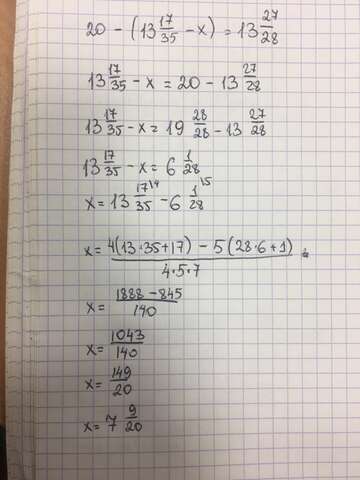 20 - (13 17/35 - x) = 13 27/28
13 17/35 - x = 20 - 13 27/28
13 17/35 - x = 19 28/28 - 13 27/28
13 17/35 - x = 6 1/28
x = 13 17/35 - 6 1/28
x = 4(13·35+17) - 5(28·6+1) / 4·5·7
x = 1888 - 845 / 140
x = 1043/140
x = 149/20
x = 7 9/20